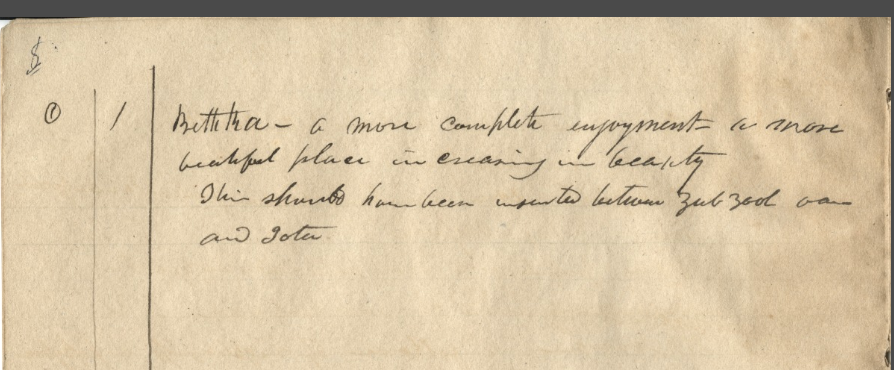 Beththa – a more complete enjoyment – a more
beautiful place increasing in beauty
This should have been inserted between Zub Zool oan
and Iota